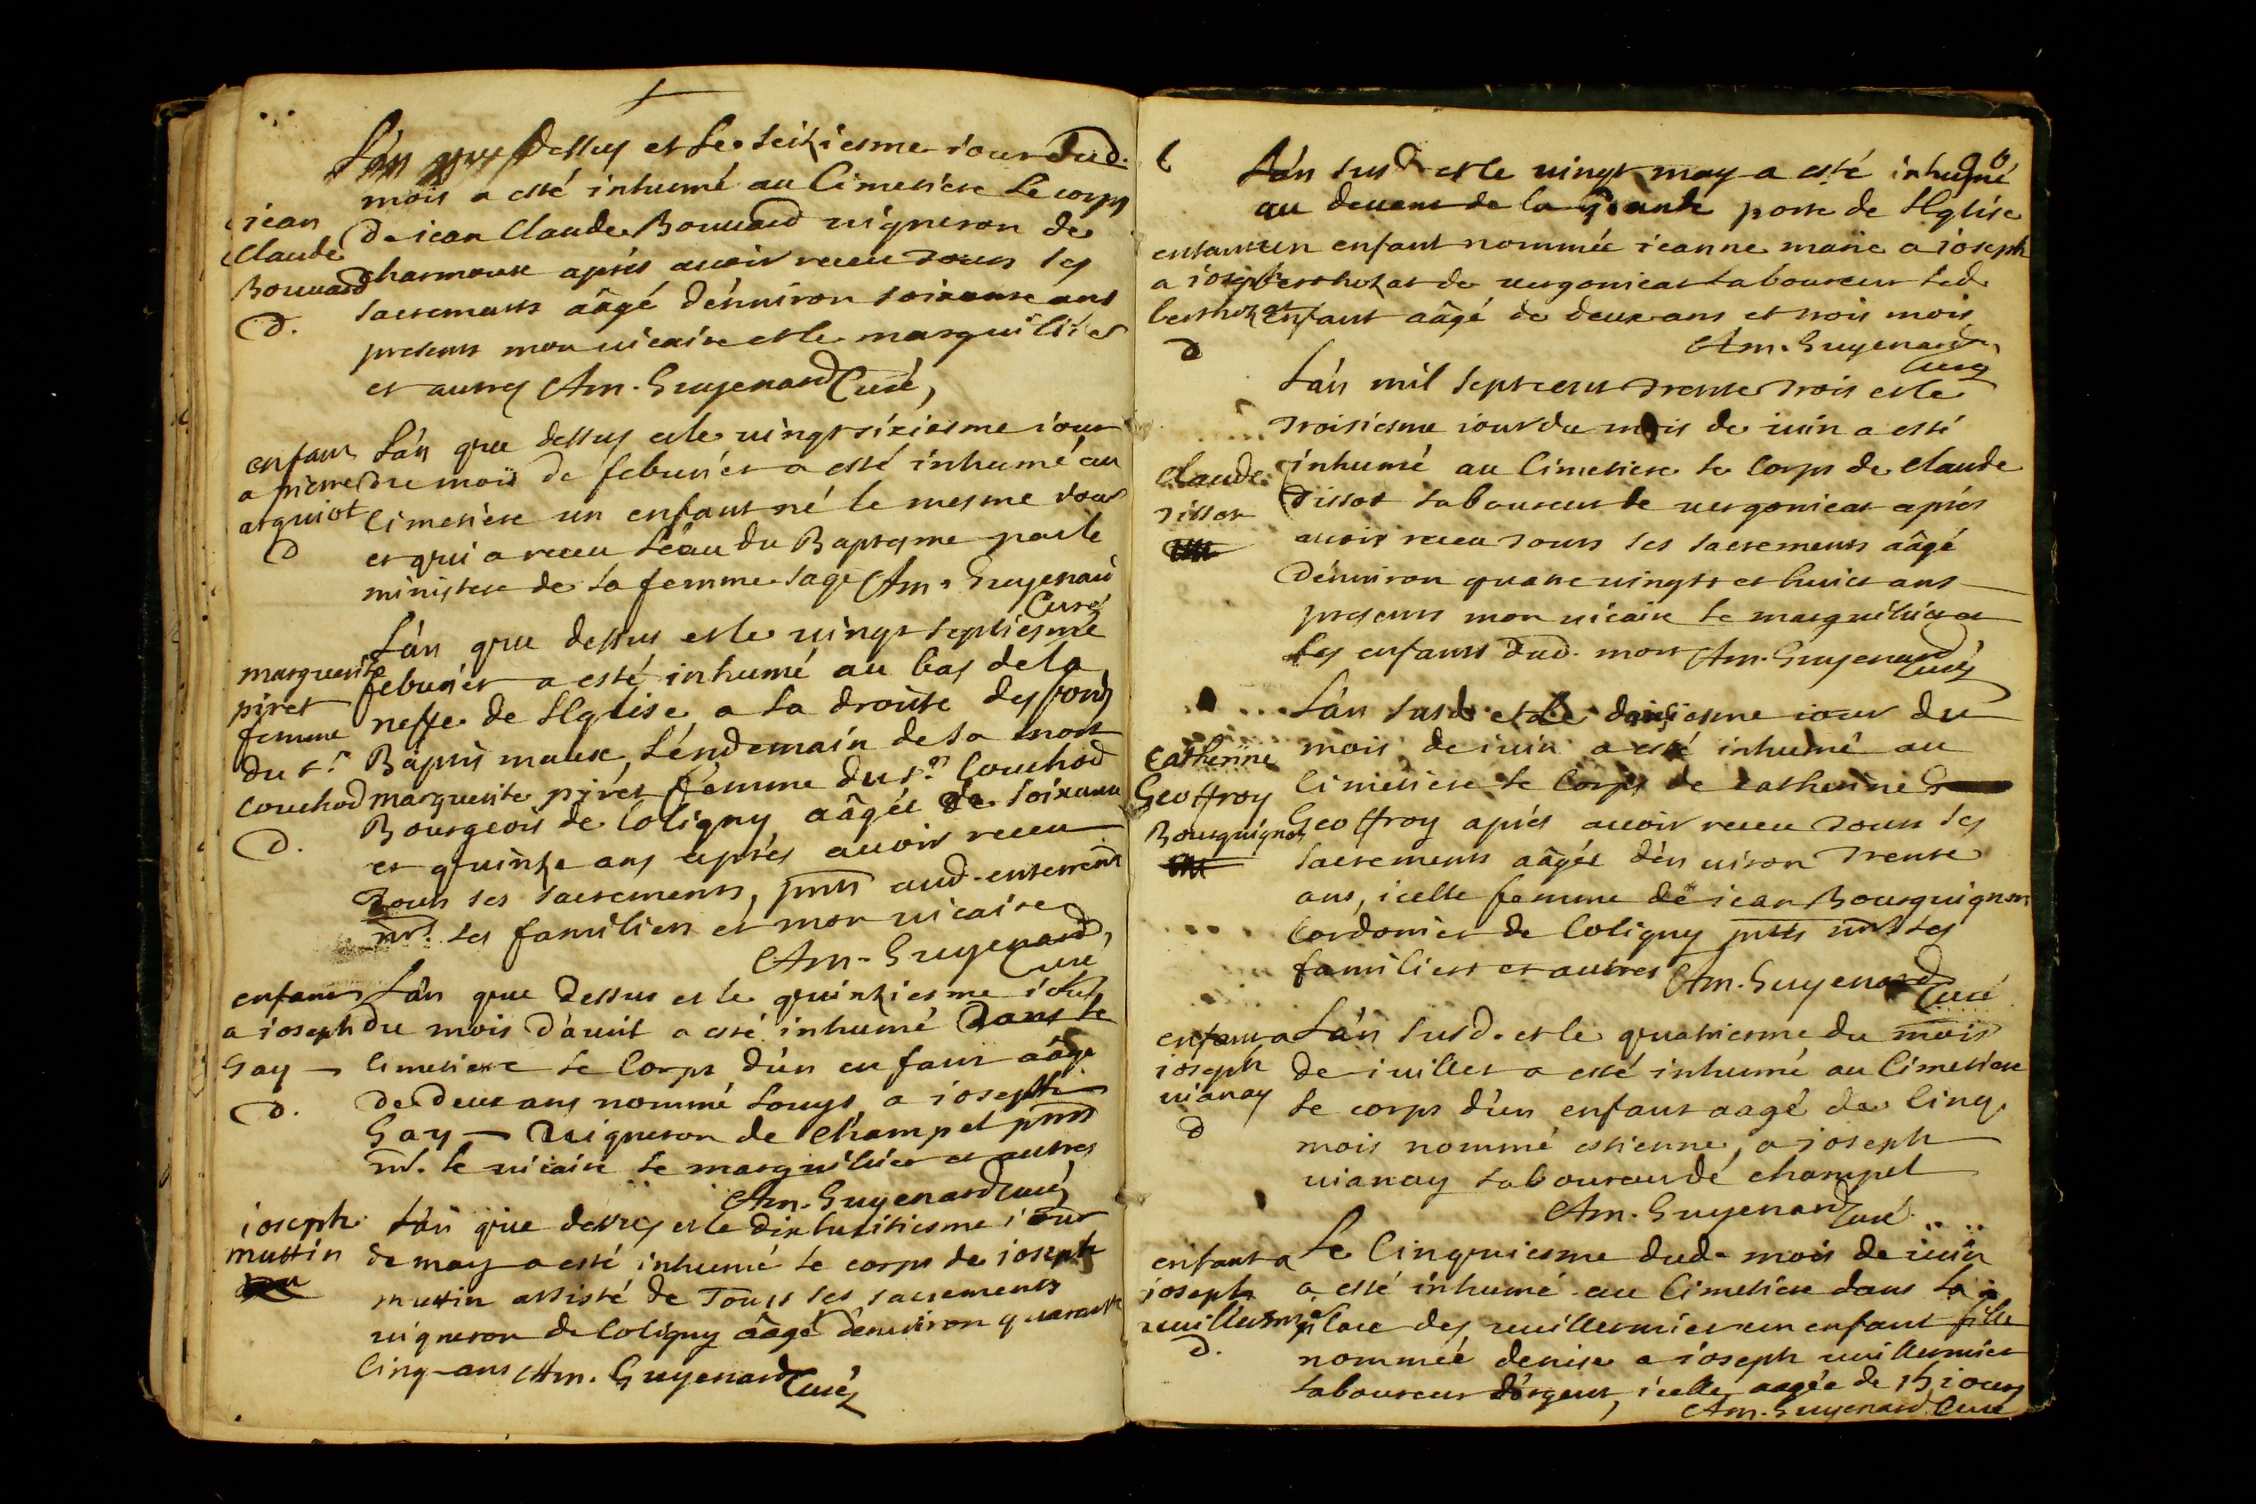 L'an que dessus et le seiziesme iour dud.
mois a esté inhumé au Cimetiere le corps
jean
Claude
Bouuard
d.
de iean Claude Bouuard uigneron de
charmoux aprés auoir receu tous les
sacrements aâgé d'énuiron soixante ans
presents mon uicaire et le marguillier
et autres Am. Guyenard Curé,
enfant
a pierre
arguiot
d
L'an que dessus et le uingt sixiesme iour
du mois de feburiér a esté inhumé au
Cimetiere un enfant né le mesme iour
et qui a receu l'eau du Baptesme par le
ministere de la femme sage Am. Guyenard
Curé
marguerite
piret
femme
du sr.
Couchod
d.
L'an que dessus et le uingt septiesme
feburiér a esté inhumé au bas de la
neffe de l'Eglise a la droitte des fonds
Baptismaux, l'endemain de la mort
marguerite piret fémme du sr. Couchod
Bourgeois de Coligny aâgée de soixante
et quinze ans aprés auoir receu
tous les sacrements, pnts aud. enterremt
mrs. les familiers et mon uicaire
Am. Guyenard,
Curé
enfant
a ioseph
Gay
d.
L'an que dessus et le quinziesme iour
du mois d'auril a esté inhumé dans le
Cimetiere le Corps d'un enfant aâgé
de deux ans nommé Louys a ioseph
Gay uigneron de champel pnts
mr. le uicaire le marguillier et autres
Am. Guyenard curé
ioseph
muttin
L'an que dessus et le dix huitiesme iour
de may a esté inhumé le corps de ioseph
muttin assisté de Tous les sacrements
uigneron de Coligny aâgé d'énuiron quarante
Cinq ans Am. Guyenard Curé
L'an susd et le uingt may a esté inhumé
au deuant de la grande porte de l'Eglise
enfant
a ioseph
berthozat
d
un enfant nommée ieanne marie a ioseph
berthozat de uergonieat laboureur led.
enfant aâgé de deux ans et trois mois
Am. Guyenard
Curé
L'an mil sept cent trente trois et le
troisiesme iour du mois de iuin a esté
Claude
tissot
inhumé au Cimetiere le Corps de Claude
tissot laboureur de uergonieat aprés
auoir receu tous les sacrements aâgé
d'énuiron quatre uingts et huict ans
presents mon uicaire le marguillier et
les enfants dud. mort Am. Guyenard
Curé
Catherine
Geoffroy
Bourguignon
L'an susd. et le douziesme iour du
mois de iuin a esté inhumé au
Cimetiere le Corps de catherine
Geoffroy aprés auoir receu tous les
sacrements aâgée d'én uiron trente
ans, icelle femme de iean Bourguignon
Cordonier de Coligny pnts mrs les
familiers et autres Am. Guyenard
Curé
enfant a
ioseph
uianay
d
L'an susd. et le quatriesme du mois
de iuillet a esté inhumé au Cimetiere
le corps d'un enfant aagé de Cinq
mois nommé estienne, a ioseph
uianay laboureur dé champel
Am. Guyenard Curé
enfant a
ioseph
uuillermier
d.
Le Cinquiesme dud. mois de iuin
a esté inhumé au Cimetiere dans la
place des uuillermier un enfant fille
nommée denise a ioseph uuillermier
laboureur d'orgeut, icelle aagée de 15 iours
Am. Guyenard Curé